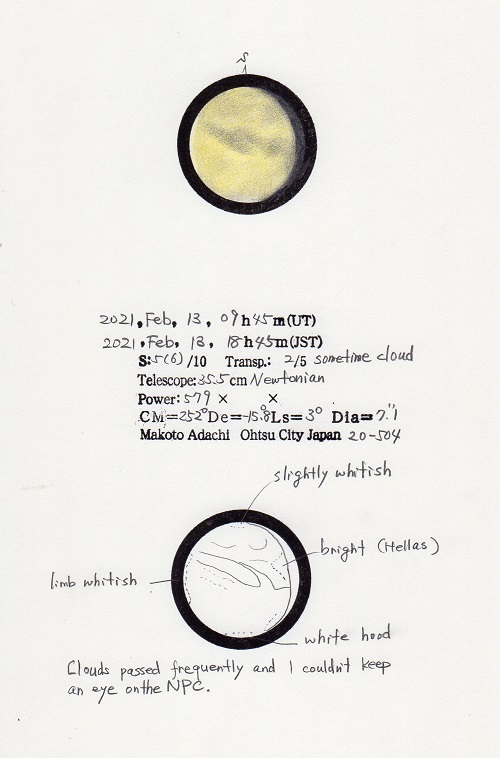 S
2021, Feb, 13, 09h45m(UT)
2021, Feb, 13, 18h45m(JST)
S:5(6)/10 Transp.: 2/5 sometime cloud
Telescope:35.5cm Newtonian
Power:579 × ×
CM=252° De=-15.8° Ls=3° Dia=7".1
Makoto Adachi Ohtsu City Japan 20-504
slightly whitish
bright (Hellas)
limb whitish
white hood
Clouds passed frequently and I couldn't keep
an eye on the NPC.